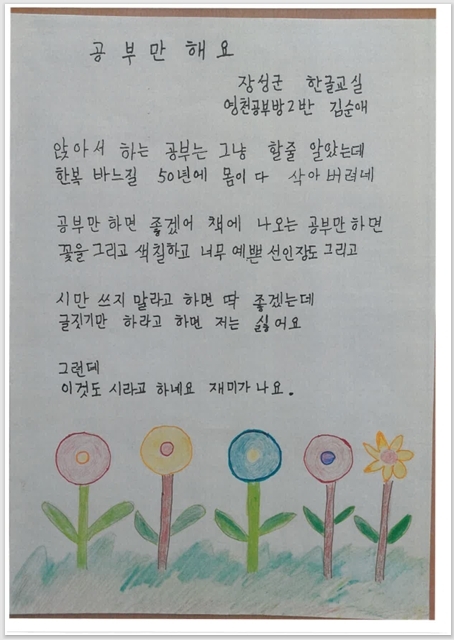 공부만 해요
장성군 한글교실
영천공부방2반 김순애
앉아서 하는 공부는 그냥 할줄 알았는데
한복 바느질 50년에 몸이 다 삭아 버려네
공부만 하면 좋겠어 책에 나오는 공부만 하면
꽃을 그리고 색칠하고 너무 예쁜 선인장도 그리고
시만 쓰지 말라고 하면 딱 좋겠는데
글짓기만 하라고 하면 저는 싫어요
그런데
이것도 시라고 하네요 재미가 나요.